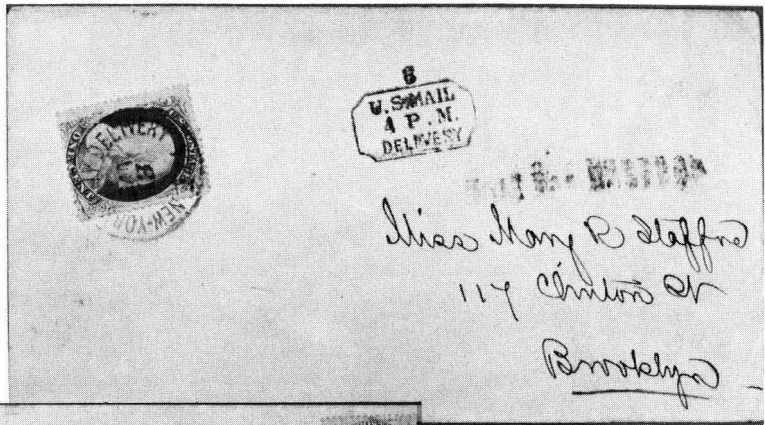 DELIVERY
NEW-YOR
6
U.S MAIL
4 P.M.
DELIVERY
Miss Mary R Stafford
117 Clinton St
Brooklyn